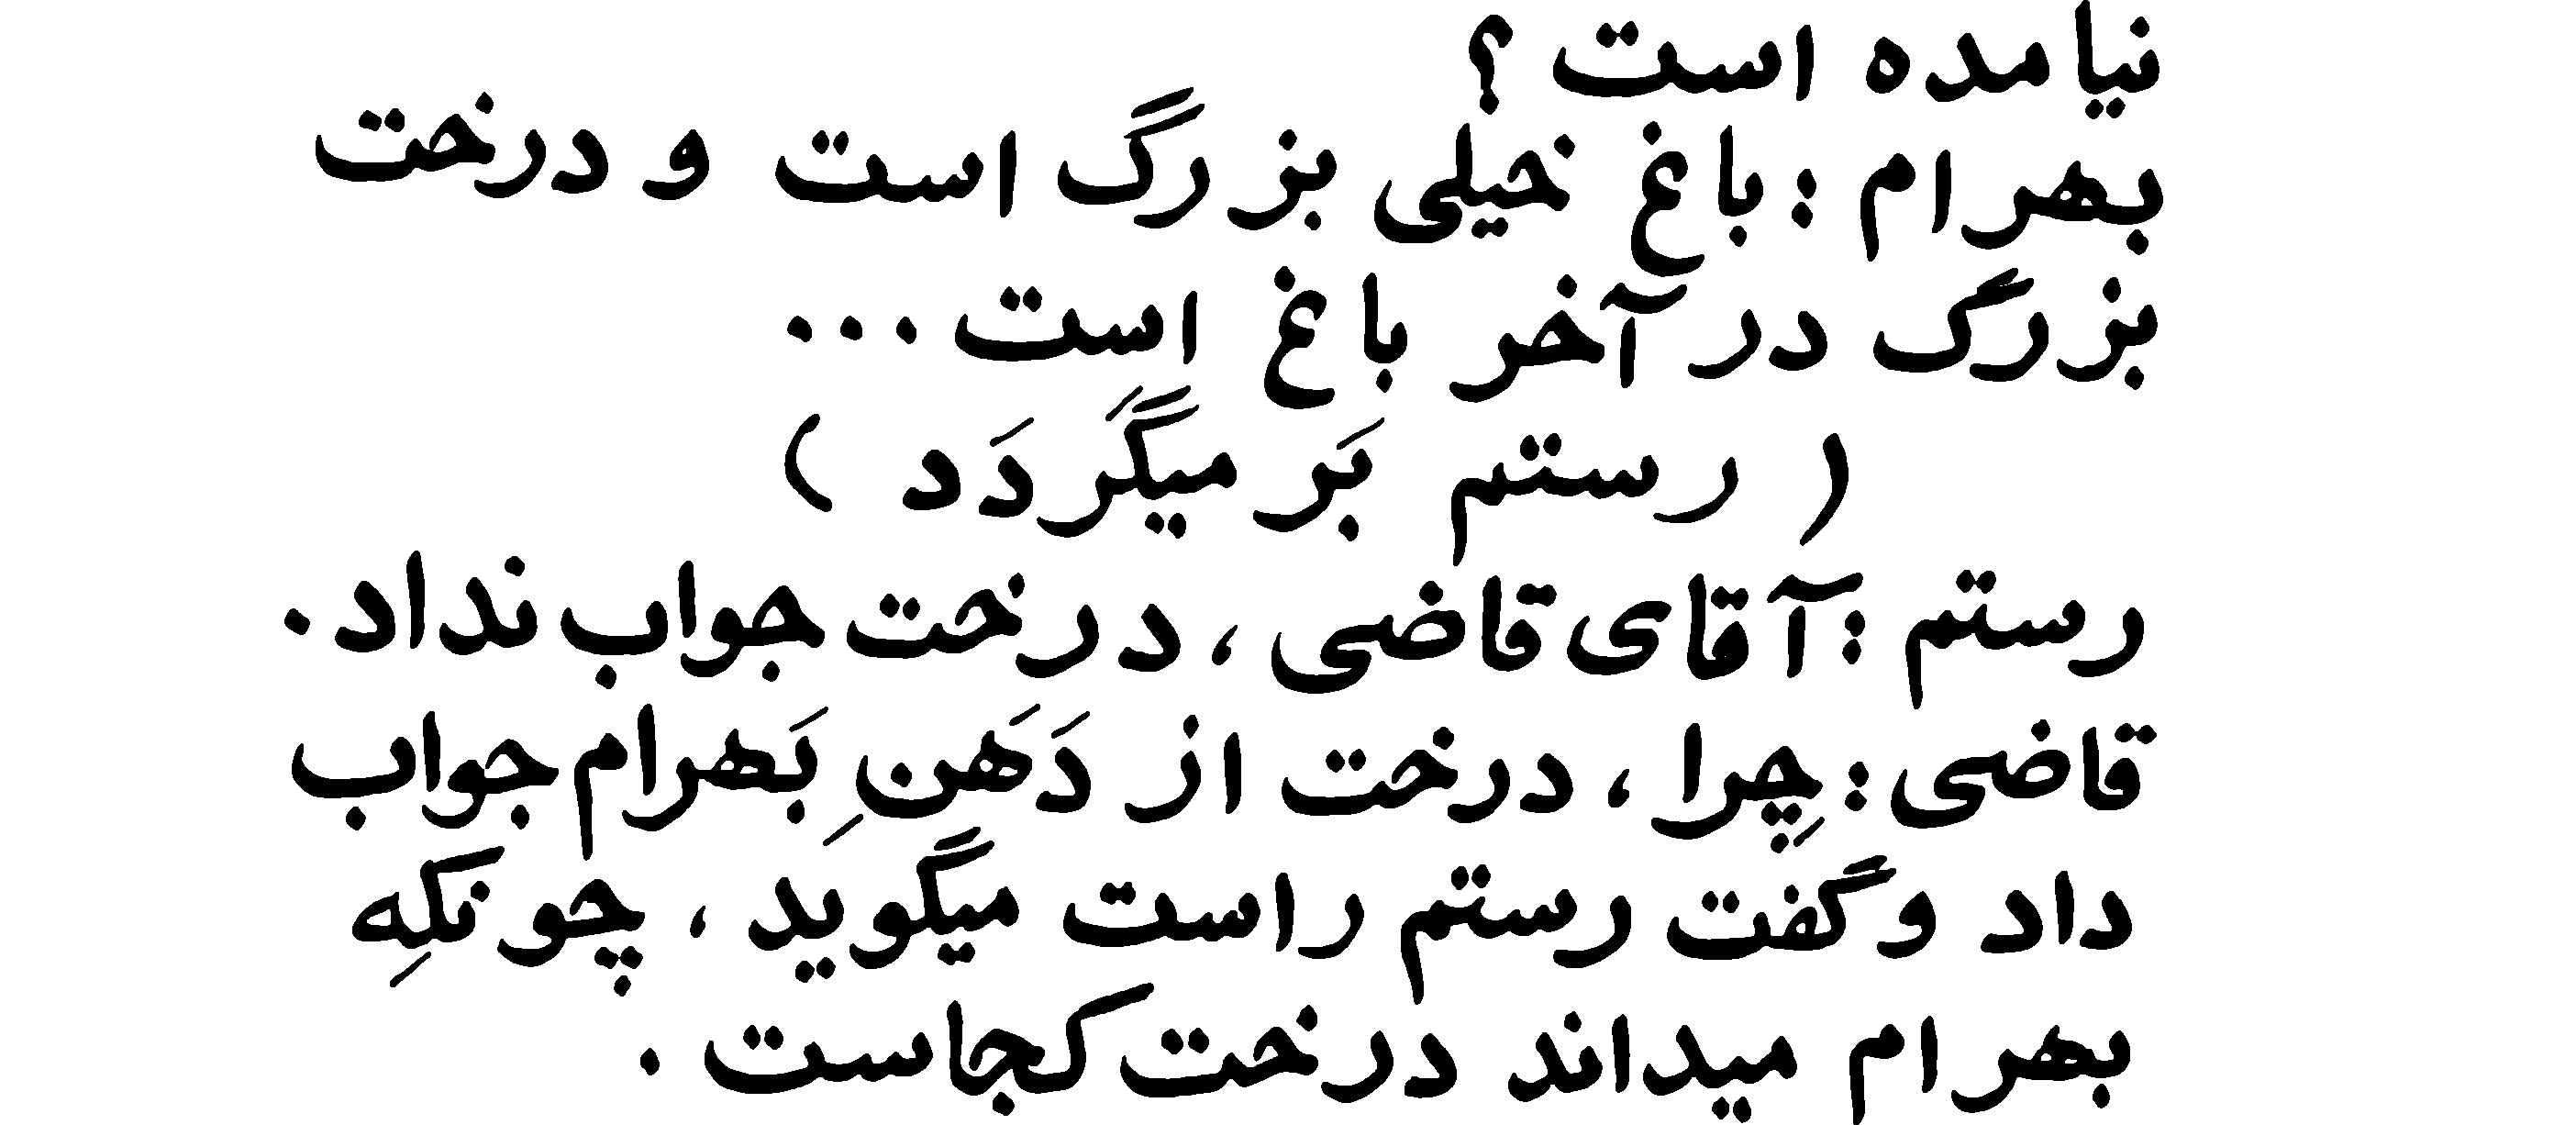 نیامده است ؟
بهرام : باغ خیلی بزرگ است و درخت
بزرگ در آخر باغ است...
( رستم بَرمیگَردَد )
رستم : آقای قاضی ، درخت جواب نداد.
قاضی : چِرا ، درخت از دَهَنِ بَهرام جواب
داد و گفت رستم راست میگوید ، چونکِه
بهرام میداند درخت کجاست .